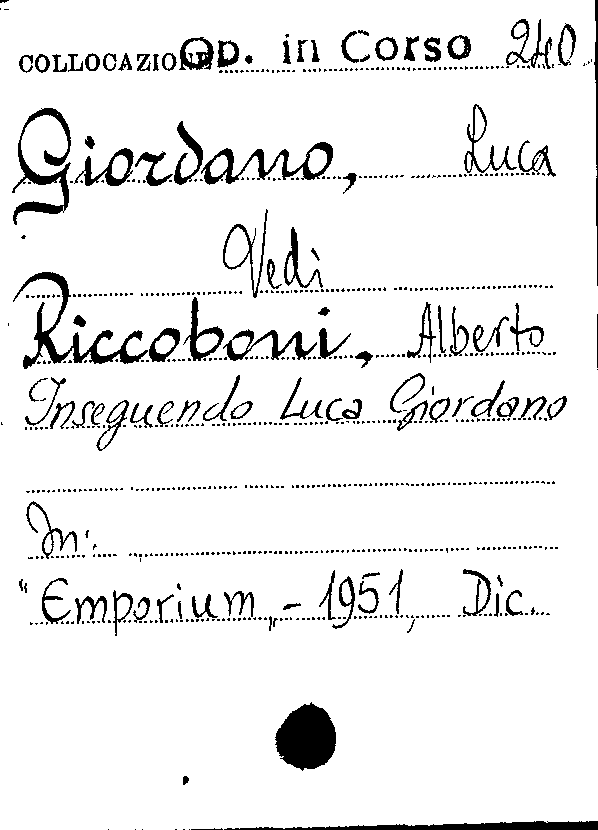 COLLOCAZIONE Op. in Corso 240
Giordano, Luca
Vedi
Riccoboni, Alberto
Inseguendo Luca Giordano
In:
"Emporium„ - 1951, Dic.